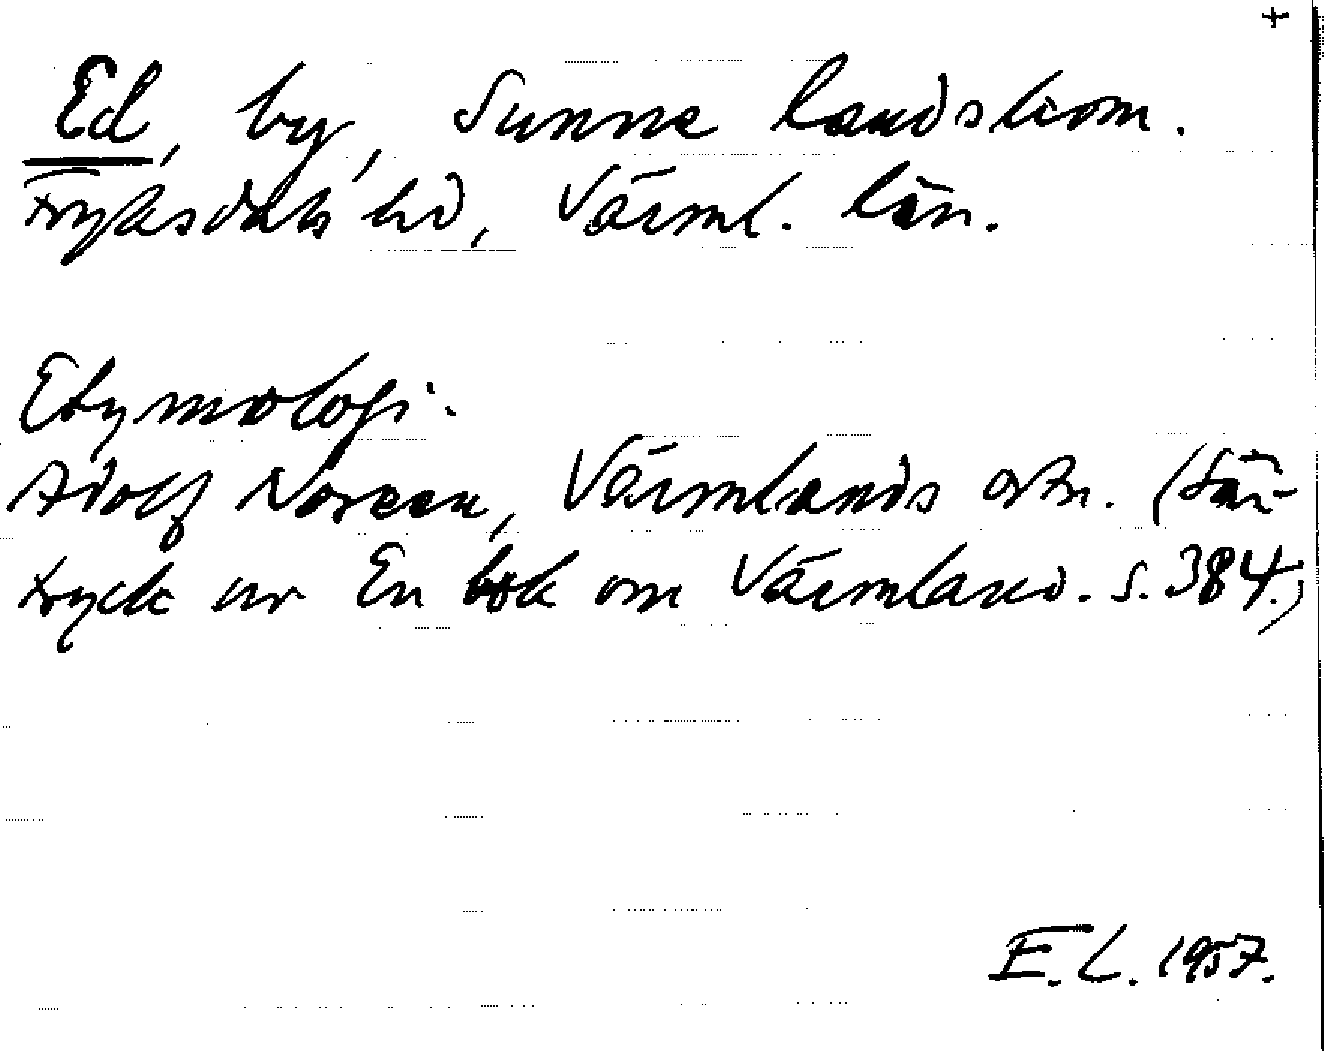 +
Ed, by, Sunne landskom.
Fryksdals hd, Värml. län.
Etymologi.
Adolf Noreen, Värmlands ortn. (Sär-
tryck ur En bok om Värmland. S. 384.)
E. L. 1957.